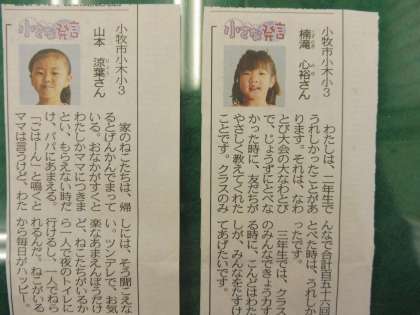 小さな発言
小牧市小木小3
楠滝 心裕さん
わたしは、二年生で
うれしかったことがあ
ります。それは、なわ
とび大会の大なわとび
で、じょうずにとべな
かった時に、友だちが
やさしく教えてくれた
ことです。クラスのみ
んなで合計百五十六回
とべた時は、うれしか
ったです。
三年生では、クラス
のみんなできょう力す
る時に、こんどはわた
しが、みんなをたすけ
てあげたいです。
小さな発言
小牧市小木小3
山本 涼葉さん
家のねこたちは、帰
るとげんかんでまって
いる。おなかがすくと
わたしかママにつきま
とい、もらえない時だ
け、パパにあまえる。
「ごはーん」と鳴くと
ママは言うけど、わた
しには、そう聞こえな
い。ツンデレで、お気
楽なあまえんぼうだけ
ど、ねこたちがいるか
ら一人で夜のトイレに
行けるし、一人でねら
れるんだ。ねこがいる
から毎日がハッピー。